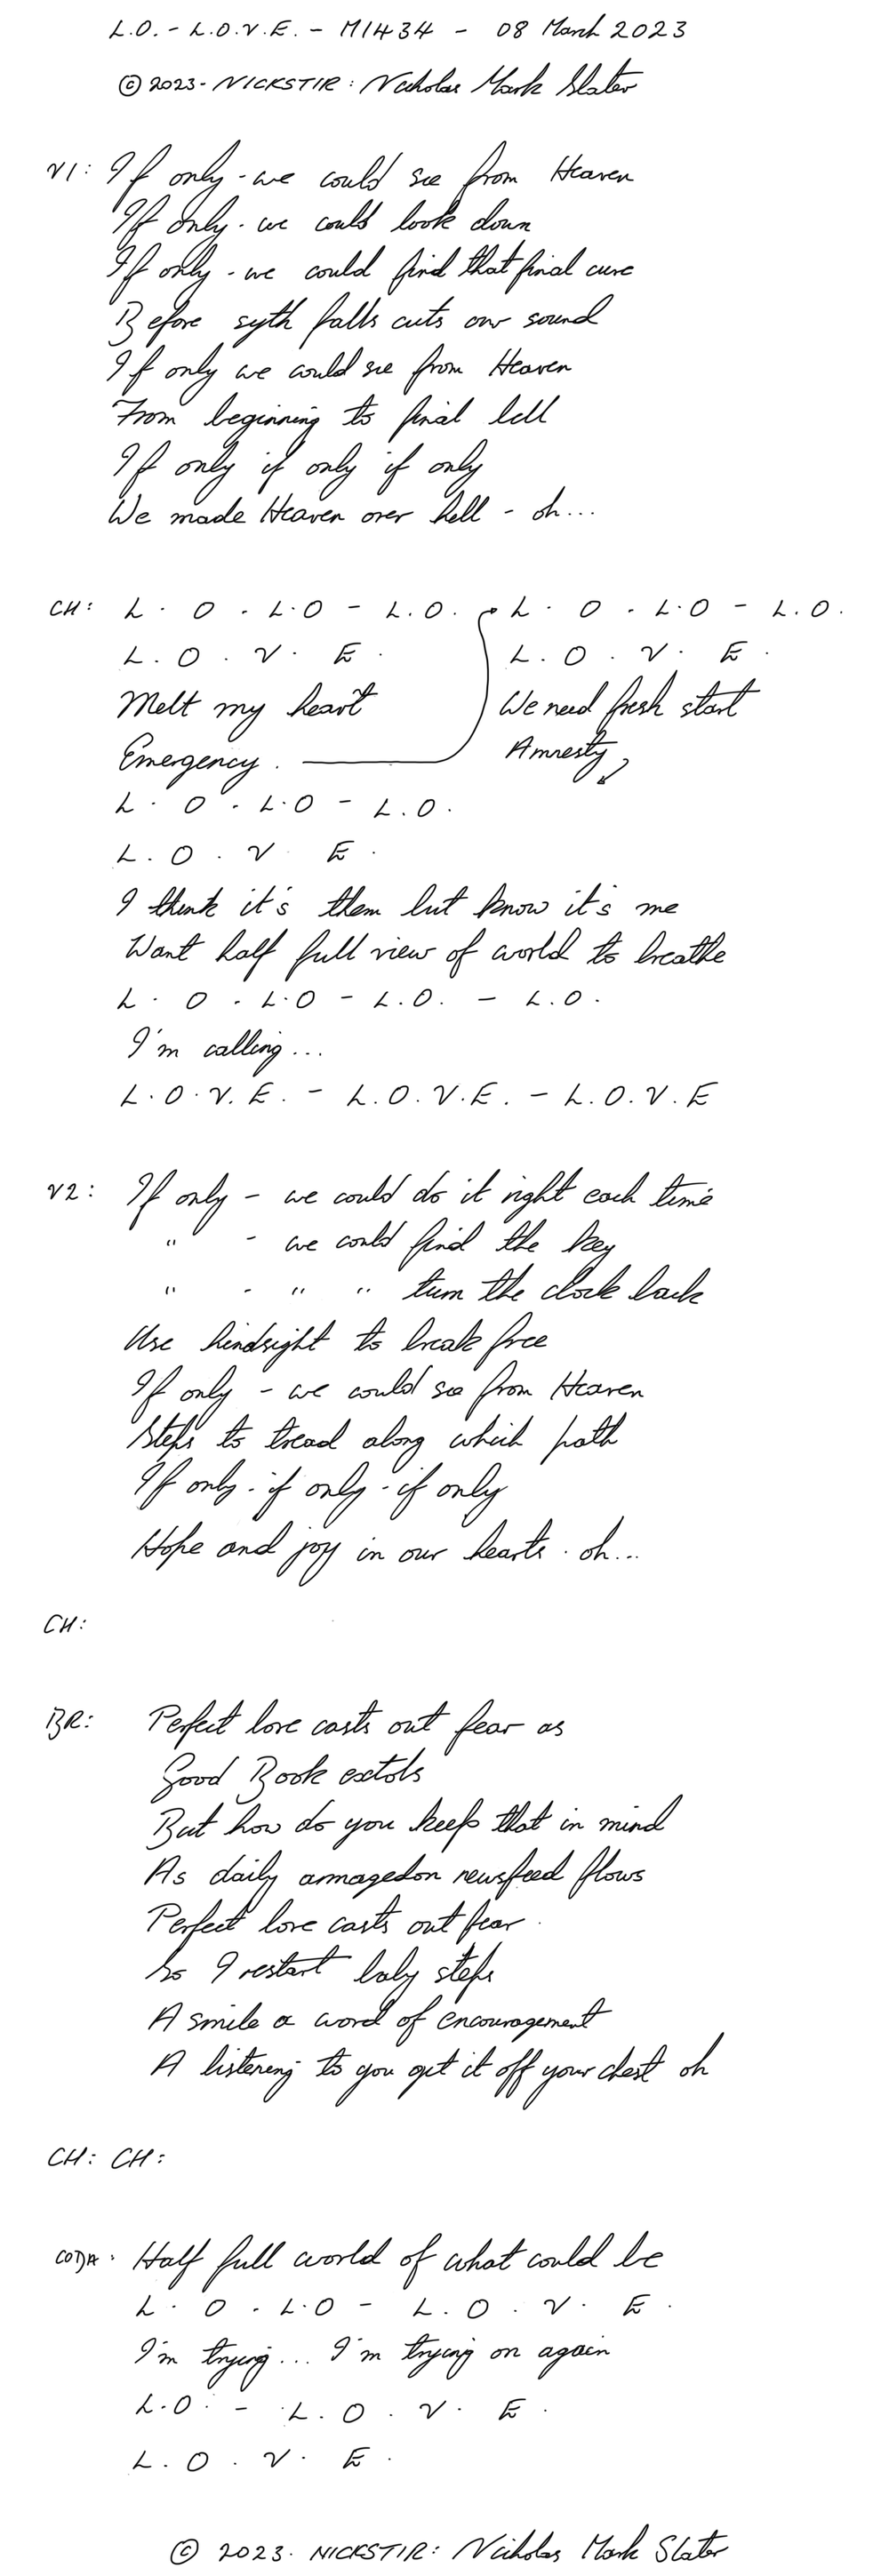 L.O. - L.O.V.E. - M1434 - 08 March 2023
© 2023 - NICKSTIR : Nicholas Mark Slater
V1: If only - we could see from Heaven
If only - we could look down
If only - we could find that final cure
Before syth falls cuts our sound
If only we could see from Heaven
From beginning to final bell
If only if only if only
We made Heaven over hell - oh...
CH: L. O. L.O - L.O.
L. O. V. E.
Melt my heart
Emergency.
L. O. L.O - L.O.
L. O. V. E.
We need fresh start
Amnesty
L. O. L.O - L.O.
L. O. V. E.
I think it's them but know it's me
Want half full view of world to breathe
L. O. L.O - L.O. - L.O.
I'm calling...
L.O.V.E. - L.O.V.E. - L.O.V.E
V2: If only - we could do it right each time
" - we could find the key
" - " " turn the clock back
Use hindsight to break free
If only - we could see from Heaven
Steps to tread along which path
If only - if only - if only
Hope and joy in our hearts - oh...
CH:
BR: Perfect love casts out fear as
Good Book extols
But how do you keep that in mind
As daily armagedon newsfeed flows
Perfect love casts out fear
So I restart baby steps
A smile a word of encouragement
A listening to you get it off your chest oh
CH: CH:
CODA: Half full world of what could be
L. O. L.O - L. O. V. E.
I'm trying... I'm trying on again
L.O. - L. O. V. E.
L. O. V. E.
© 2023. NICKSTIR: Nicholas Mark Slater